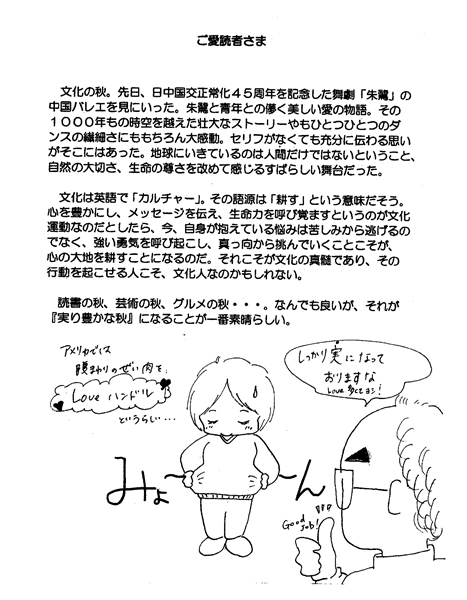 ご愛読者さま
文化の秋。先日、日中国交正常化45周年を記念した舞劇「朱鷺」の
中国バレエを見にいった。朱鷺と青年との儚く美しい愛の物語。その
1000年もの時空を越えた壮大なストーリーやもひとつひとつのダ
ンスの繊細さにももちろん大感動。セリフがなくても充分に伝わる思い
がそこにはあった。地球にいきているのは人間だけではないということ、
自然の大切さ、生命の尊さを改めて感じるすばらしい舞台だった。
文化は英語で「カルチャー」。その語源は「耕す」という意味だそう。
心を豊かにし、メッセージを伝え、生命力を呼び覚ますというのが文化
運動なのだとしたら、今、自身が抱えている悩みは苦しみから逃げるの
でなく、強い勇気を呼び起こし、真っ向から挑んでいくことこそが、
心の大地を耕すことになるのだ。それこそが文化の真髄であり、その
行動を起こせる人こそ、文化人なのかもしれない。
読書の秋、芸術の秋、グルメの秋・・・。なんでも良いが、それが
『実り豊かな秋』になることが一番素晴らしい。
アメリカでは
腰まわりのぜい肉を
Love ハンドル
というらしい…
しっかり実になって
おりますな
Love 多くてヨシ!
みょ〜ん
Good
Job!